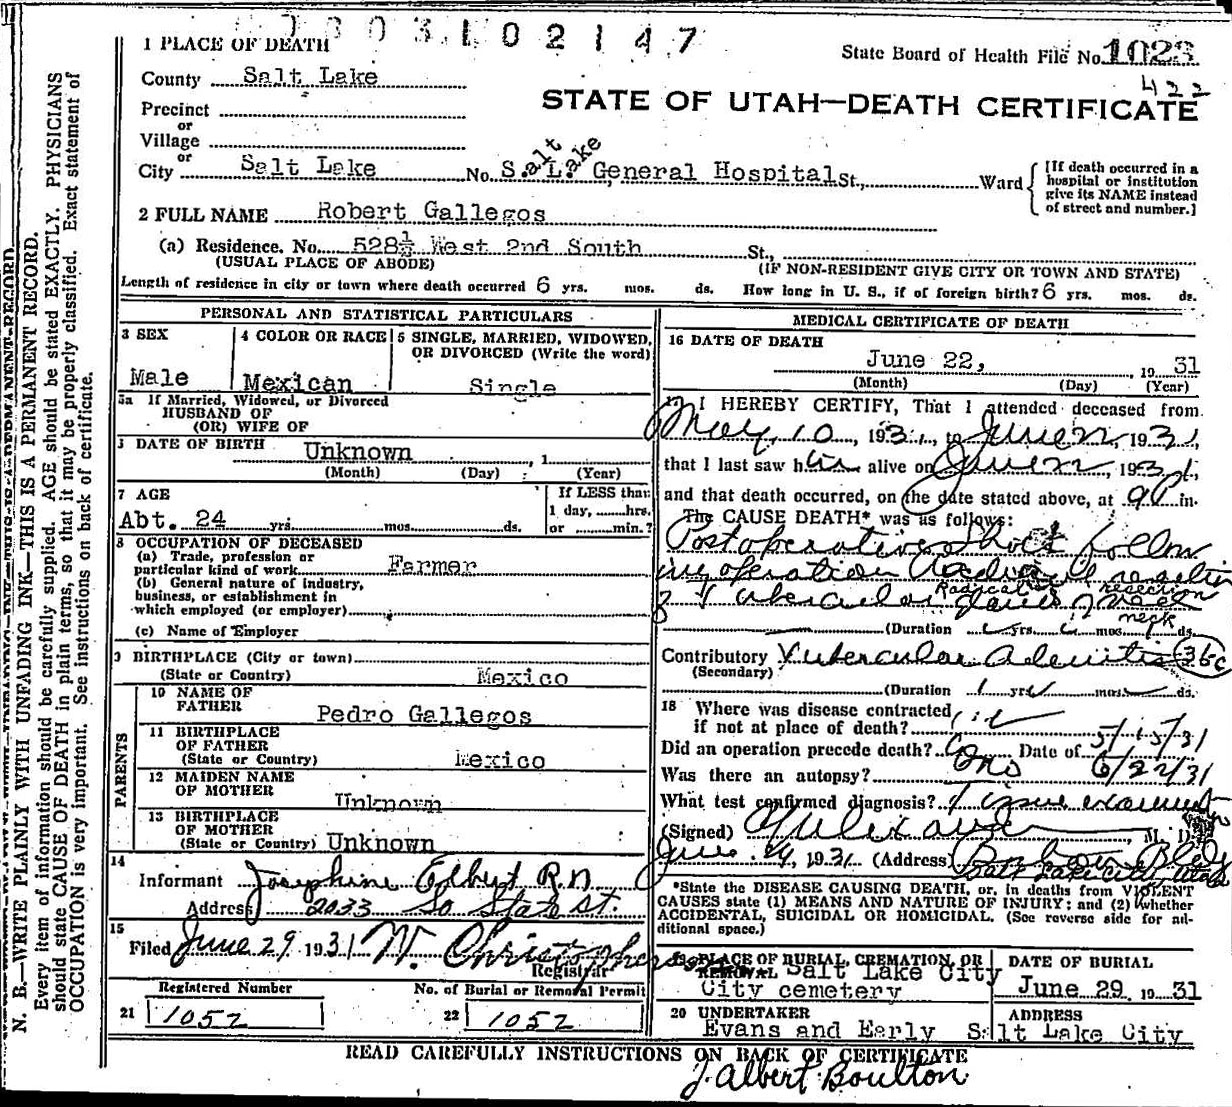 0 3 1 0 2 1 4 7
1 PLACE OF DEATH
State Board of Health File No. 1023
422
County Salt Lake
STATE OF UTAH—DEATH CERTIFICATE
Precinct
or
Village
or
City Salt Lake No. S.alt L.ake General Hospital St., Ward
[If death occurred in a hospital or institution give its NAME instead of street and number.]
2 FULL NAME Robert Gallegos
(a) Residence. No. 528½ West 2nd South St.,
(USUAL PLACE OF ABODE) (IF NON-RESIDENT GIVE CITY OR TOWN AND STATE)
Length of residence in city or town where death occurred 6 yrs. mos. ds. How long in U. S., if of foreign birth? 6 yrs. mos. ds.
PERSONAL AND STATISTICAL PARTICULARS
3 SEX
Male
4 COLOR OR RACE
Mexican
5 SINGLE, MARRIED, WIDOWED, OR DIVORCED (Write the word)
Single
5a If Married, Widowed, or Divorced
HUSBAND OF
(OR) WIFE OF
DATE OF BIRTH Unknown , 1
(Month) (Day) (Year)
7 AGE
Abt. 24 yrs. mos. ds.
If LESS than
1 day, hrs.
or min.?
8 OCCUPATION OF DECEASED
(a) Trade, profession or
particular kind of work Farmer
(b) General nature of industry,
business, or establishment in
which employed (or employer)
(c) Name of Employer
9 BIRTHPLACE (City or town)
(State or Country) Mexico
PARENTS
10 NAME OF
FATHER Pedro Gallegos
11 BIRTHPLACE
OF FATHER
(State or Country) Mexico
12 MAIDEN NAME
OF MOTHER Unknown
13 BIRTHPLACE
OF MOTHER
(State or Country) Unknown
14
Informant Josephine Elbert R.N.
Address 2033 So State St.
15
Filed June 29 1931 W. Christopherson
Registrar
Registered Number
21 1052
No. of Burial or Removal Permit
22 1052
MEDICAL CERTIFICATE OF DEATH
16 DATE OF DEATH
June 22, , 19 31
(Month) (Day) (Year)
17 I HEREBY CERTIFY, That I attended deceased from
May 10, 1931, to June 22, 1931,
that I last saw him alive on June 22, 1931,
and that death occurred, on the date stated above, at 9 P m.
The CAUSE DEATH* was as follows:
Post operative Shock follow
ing operation Radical resection
of Tubercular glands of neck
Radical resection
neck
(Duration yrs. mos. 1 ds.
Contributory Tubercular Adenitis 36c
(Secondary)
(Duration 1 yrs. mos. ds.
18 Where was disease contracted
if not at place of death?
Did an operation precede death? Date of 5/15/31
6/22/31
Was there an autopsy? no
What test confirmed diagnosis? Tissue
(Signed) M. D.
June 24, 1931 (Address)
Salt Lake City, Utah
*State the DISEASE CAUSING DEATH, or, in deaths from VIOLENT
CAUSES state (1) MEANS AND NATURE OF INJURY; and (2) whether
ACCIDENTAL, SUICIDAL OR HOMICIDAL. (See reverse side for ad-
ditional space.)
19 PLACE OF BURIAL, CREMATION, OR
REMOVAL Salt Lake City
City cemetery
DATE OF BURIAL
June 29 19 31
20 UNDERTAKER
Evans and Early
ADDRESS
Salt Lake City
READ CAREFULLY INSTRUCTIONS ON BACK OF CERTIFICATE
J. Albert Boulton
N. B.—WRITE PLAINLY WITH UNFADING INK—THIS IS A PERMANENT RECORD.
Every item of information should be carefully supplied. AGE should be stated EXACTLY. PHYSICIANS
should state CAUSE OF DEATH in plain terms, so that it may be properly classified. Exact statement of
OCCUPATION is very important. See instructions on back of certificate.